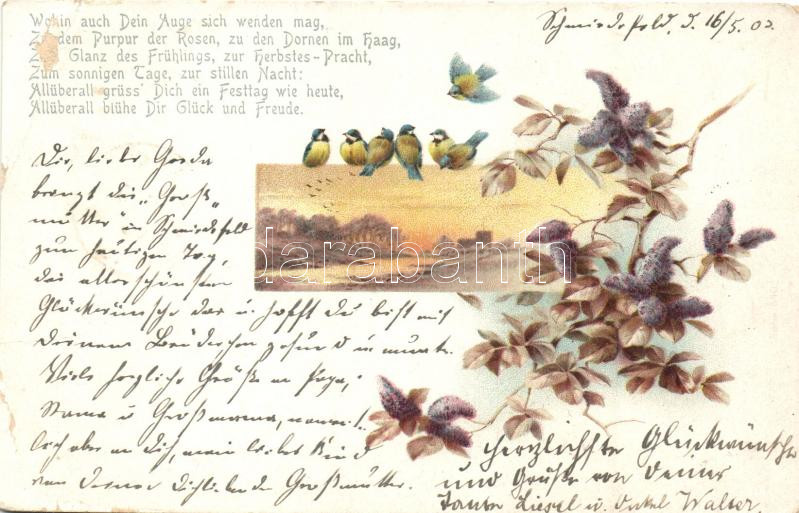 Wohin auch Dein Auge sich wenden mag,
Zu dem Purpur der Rosen, zu den Dornen im Haag,
Glanz des Frühlings, zur Herbstes-Pracht,
Zum sonnigen Tage, zur stillen Nacht:
Allüberall grüss' Dich ein Festtag wie heute,
Allüberall blühe Dir Glück und Freude.
Schmiedefeld, d. 16/5. 02
Dir, liebe Gerda
bringt die „Groß
mutter" in Schmiedefeld
zum heutigen Tag,
die allerschönsten
Glückwünsche dar u. hofft Du bist mit
Deinem Brüderchen gesund u. munter.
Viele herzliche Grüße an Papa,
Mama u. Großmama, nament-
lich aber an Dich, mein liebes Kind
von Deiner Dich liebenden Großmutter.
Herzlichste Glückwünsche
und Grüße von Deiner
Tante Liesel u. Onkel Walter.
darabanth